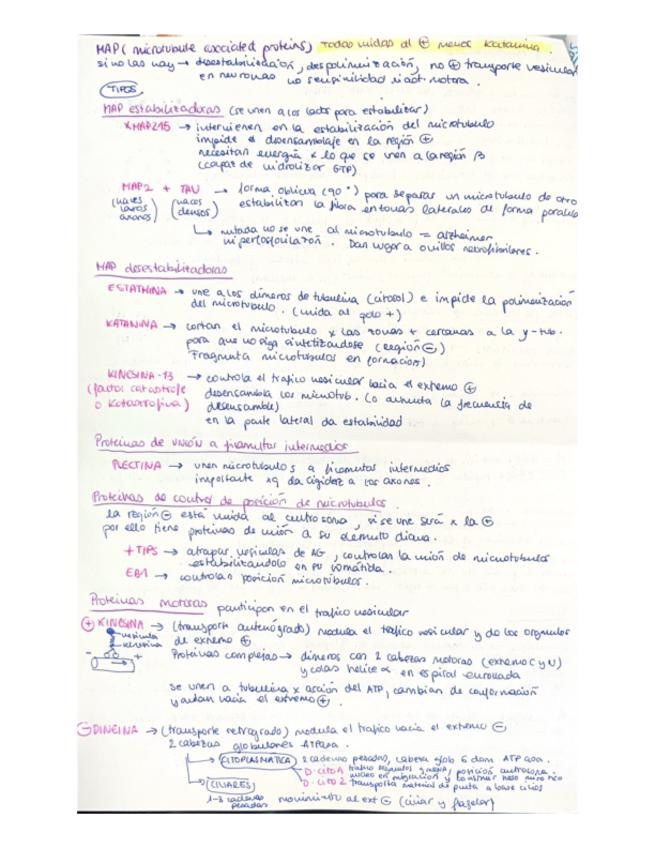 MAP (microtubule asociated proteins) todas unidas al ⊕ menos katanina.
si no las hay → desestabilización, despolimerización, no ⊕ transporte vesicular
en neuronas no sensitividad ni act. motora.
TIPOS
MAP estabilizadoras (se unen a los lados para estabilizar)
XMAP215 → intervienen en la estabilización del microtubulo
impide el desensamblaje en la región ⊕
necesitan energía x lo que se unen a la región β
(capaz de hidrolizar GTP)
MAP2 + TAU → forma oblicua (90°) para separar un microtubulo de otro
(haces laxos axones) (haces densos) estabilizan la fibra en zonas laterales de forma paralela
↳ mutada no se une al microtubulo = alzheimer
hiperfosforilación. Dan lugar a ovillos neurofibrilares.
MAP desestabilizadoras
ESTATMINA → une a los dímeros de tubulina (citosol) e impide la polimerización
del microtubulo. (unida al polo +)
KATANINA → cortan el microtubulo x las zonas + cercanas a la γ-tub.
para que no siga sintetizandose (región ⊖)
Fragmenta microtubulos en formación
KINESINA-13 → controla el trafico vesicular hacia el extremo ⊕
(factor catastrofe desensambla los microtub. (o aumenta la frecuencia de
o katastrofina) desensamble)
en la parte lateral da estabilidad
Proteinas de unión a filamentos intermedios
PLECTINA → unen microtubulos a filamentos intermedios
importante xq da rigidez a los axones.
Proteinas de control de posición de microtubulos.
la región ⊖ está unida al centrosoma, si se une será x la ⊖
por ello tiene proteinas de unión a su elemento diana.
+TIPS → atrapar vesiculas de AG, controlan la unión de microtubulos
estabilitandolo en
EB1 → controlan posición microtúbulos.
Proteinas motoras participan en el trafico vesicular
⊕ KINESINA → (transporte anterógrado) modula el tráfico vesicular y de los organulos
vesícula
kinesina de extremo ⊕
- + Proteinas complejas → dímeros con 2 cabezas motoras (extremo C y N)
y colas helice α en espiral enrollada
se unen a tubulina x acción del ATP, cambian de conformación
y andan hacia el extremo ⊕.
⊖ DINEINA → (transporte retrogrado) modula el trafico hacia el extremo ⊖
2 cabezas globulares ATPasa.
CITOPLASMATICA 2 cadenas pesadas, cabeza glob 6 dom ATPasa.
D. CITO 1 posición centrosoma.
nucleo en migración
D. CITO 2 transporta material de punta a base cilios
CILIARES
1-3 cadenas pesadas movimiento al ext ⊖ (ciliar y flagelar)